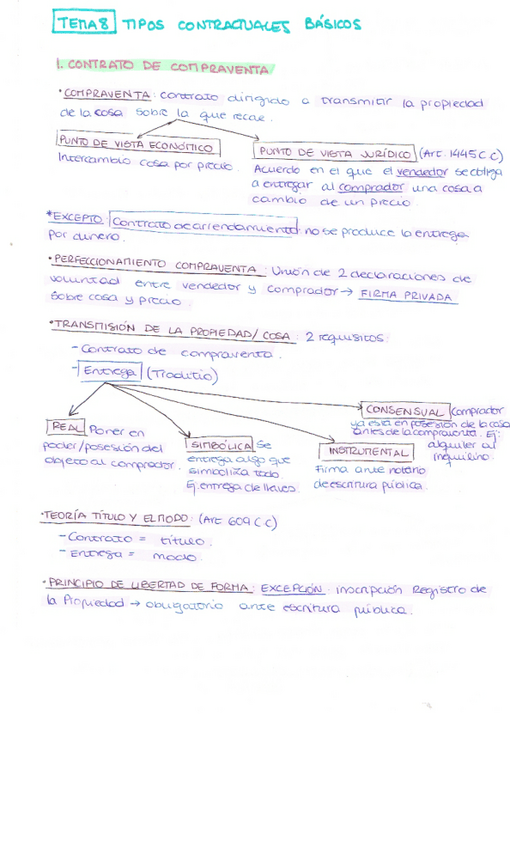 TEMA 8 TIPOS CONTRACTUALES BÁSICOS
1. CONTRATO DE COMPRAVENTA
· COMPRAVENTA: contrato dirigido a transmitir la propiedad
de la cosa sobre la que recae.
PUNTO DE VISTA ECONÓMICO
Intercambio cosa por precio.
PUNTO DE VISTA JURÍDICO (Art. 1445 C.C)
Acuerdo en el que el vendedor se obliga
a entregar al comprador una cosa a
cambio de un precio.
*EXCEPTO: Contrato de arrendamiento: no se produce la entrega
por dinero.
· PERFECCIONAMIENTO COMPRAVENTA: Unión de 2 declaraciones de
voluntad entre vendedor y comprador → FIRMA PRIVADA
sobre cosa y precio.
· TRANSMISIÓN DE LA PROPIEDAD/COSA: 2 requisitos:
- Contrato de compraventa.
- Entrega (Traditio)
REAL Poner en
poder/posesión del
objeto al comprador.
SIMBÓLICA Se
entrega algo que
simboliza todo
Ej. entrega de llaves.
INSTRUMENTAL
Firma ante notario
de escritura pública.
CONSENSUAL (Comprador
ya está en posesión de la cosa
antes de la compraventa. Ej:
alquiler al
inquilino.
· TEORÍA TÍTULO Y EL MODO: (Art 609 C.C)
- Contrato = título.
- Entrega = modo.
· PRINCIPIO DE LIBERTAD DE FORMA: EXCEPCIÓN: inscripción Registro de
la Propiedad → obligatorio ante escritura pública.